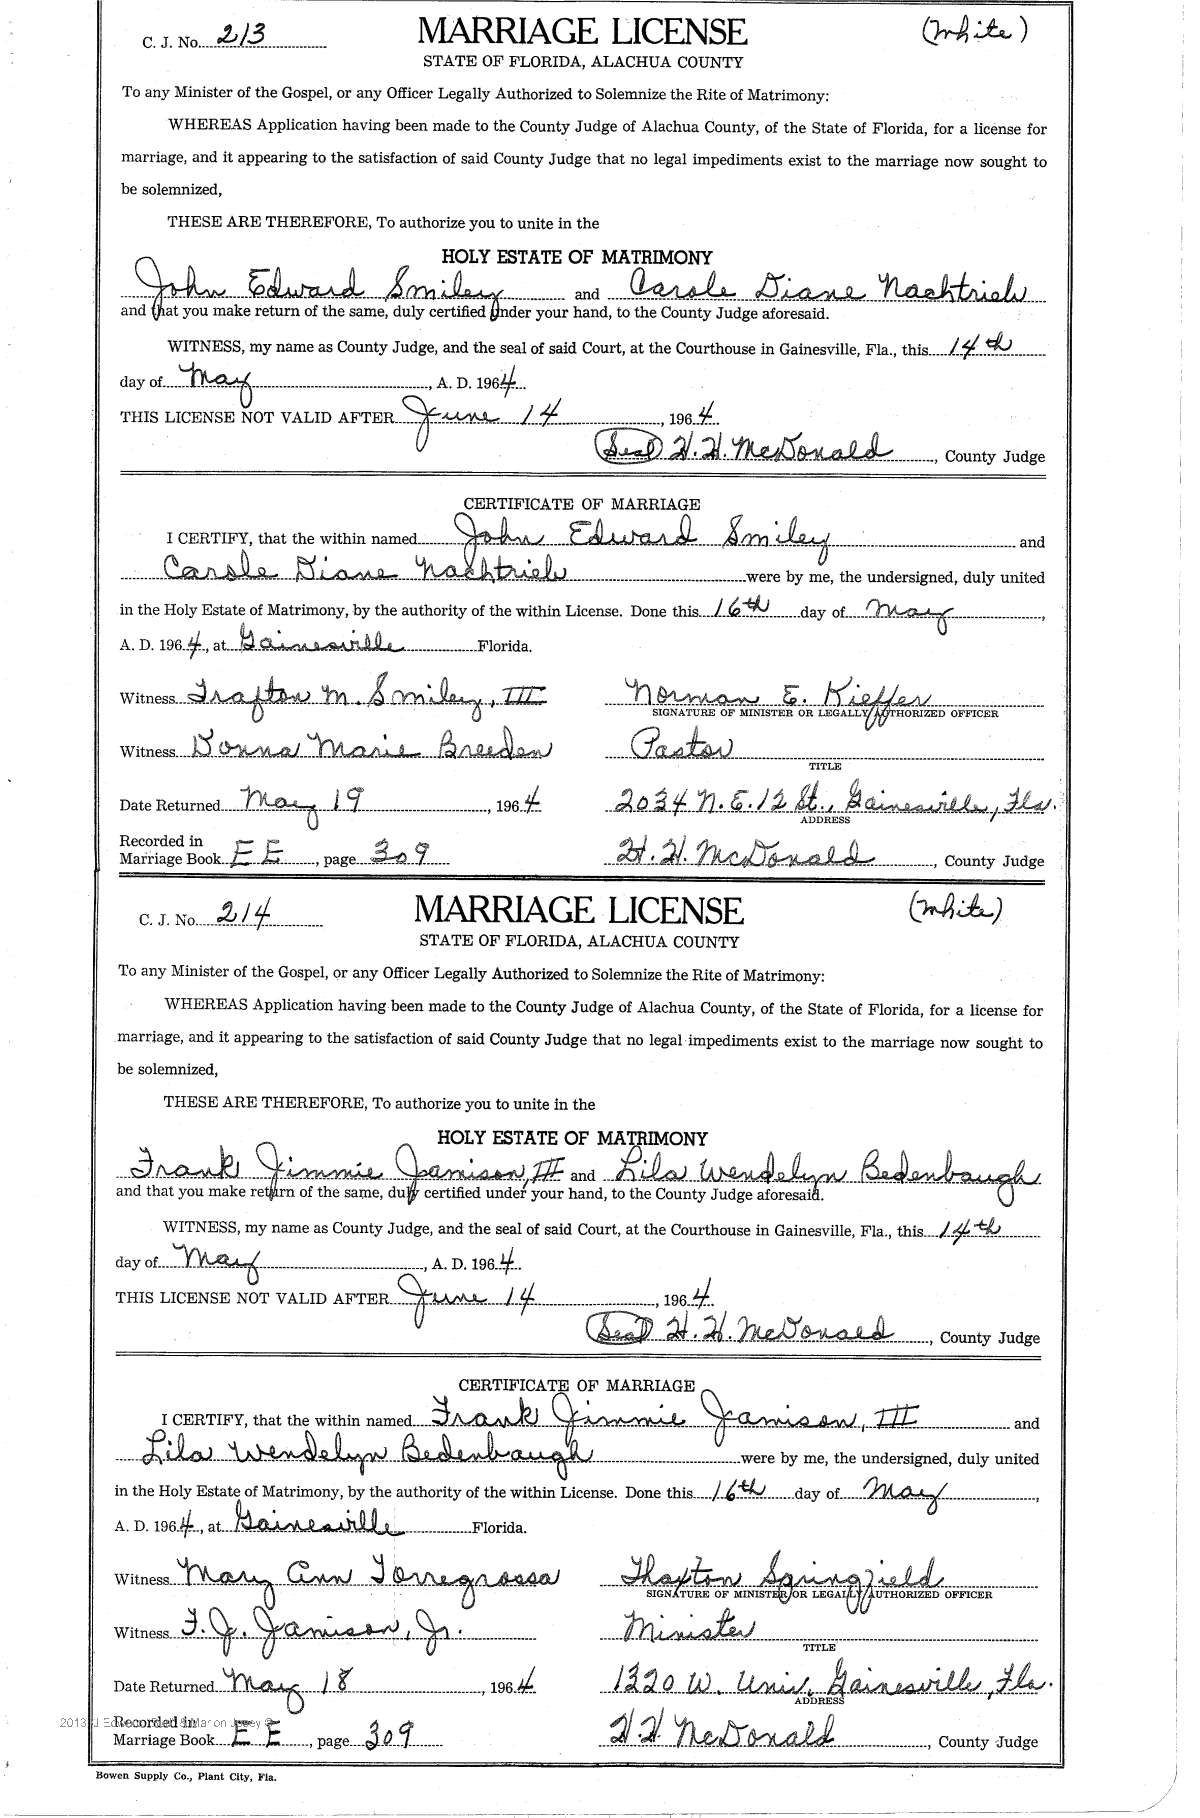 C. J. No. 213 MARRIAGE LICENSE (White)
STATE OF FLORIDA, ALACHUA COUNTY
To any Minister of the Gospel, or any Officer Legally Authorized to Solemnize the Rite of Matrimony:
WHEREAS Application having been made to the County Judge of Alachua County, of the State of Florida, for a license for
marriage, and it appearing to the satisfaction of said County Judge that no legal impediments exist to the marriage now sought to
be solemnized,
THESE ARE THEREFORE, To authorize you to unite in the
HOLY ESTATE OF MATRIMONY
John Edward Smiley and Carole Diane Nachtrieb
and that you make return of the same, duly certified under your hand, to the County Judge aforesaid.
WITNESS, my name as County Judge, and the seal of said Court, at the Courthouse in Gainesville, Fla., this 14th
day of May, A. D. 1964
THIS LICENSE NOT VALID AFTER June 14, 1964
(Seal) H. H. McDonald, County Judge
CERTIFICATE OF MARRIAGE
I CERTIFY, that the within named John Edward Smiley and
Carole Diane Nachtrieb were by me, the undersigned, duly united
in the Holy Estate of Matrimony, by the authority of the within License. Done this 16th day of May,
A. D. 1964, at Gainesville Florida.
Witness Trafton M. Smiley, III Norman E. Kieffer
SIGNATURE OF MINISTER OR LEGALLY AUTHORIZED OFFICER
Witness Donna Marie Breeden Pastor
TITLE
Date Returned May 19, 1964 2034 N. E. 12 St., Gainesville, Fla.
ADDRESS
Recorded in
Marriage Book EE, page 309 H. H. McDonald, County Judge
C. J. No. 214 MARRIAGE LICENSE (White)
STATE OF FLORIDA, ALACHUA COUNTY
To any Minister of the Gospel, or any Officer Legally Authorized to Solemnize the Rite of Matrimony:
WHEREAS Application having been made to the County Judge of Alachua County, of the State of Florida, for a license for
marriage, and it appearing to the satisfaction of said County Judge that no legal impediments exist to the marriage now sought to
be solemnized,
THESE ARE THEREFORE, To authorize you to unite in the
HOLY ESTATE OF MATRIMONY
Frank Jimmie Jamison, III and Lila Wendelyn Bedenbaugh
and that you make return of the same, duly certified under your hand, to the County Judge aforesaid.
WITNESS, my name as County Judge, and the seal of said Court, at the Courthouse in Gainesville, Fla., this 14th
day of May, A. D. 1964
THIS LICENSE NOT VALID AFTER June 14, 1964
(Seal) H. H. McDonald, County Judge
CERTIFICATE OF MARRIAGE
I CERTIFY, that the within named Frank Jimmie Jamison, III and
Lila Wendelyn Bedenbaugh were by me, the undersigned, duly united
in the Holy Estate of Matrimony, by the authority of the within License. Done this 16th day of May,
A. D. 1964, at Gainesville Florida.
Witness Mary Ann Torregrossa Thaxton Springfield
SIGNATURE OF MINISTER OR LEGALLY AUTHORIZED OFFICER
Witness F. J. Jamison, Jr. Minister
TITLE
Date Returned May 18, 1964 1320 W. Univ. Gainesville, Fla.
ADDRESS
2013 Recorded in
Marriage Book EE, page 309 H. H. McDonald, County Judge
Bowen Supply Co., Plant City, Fla.